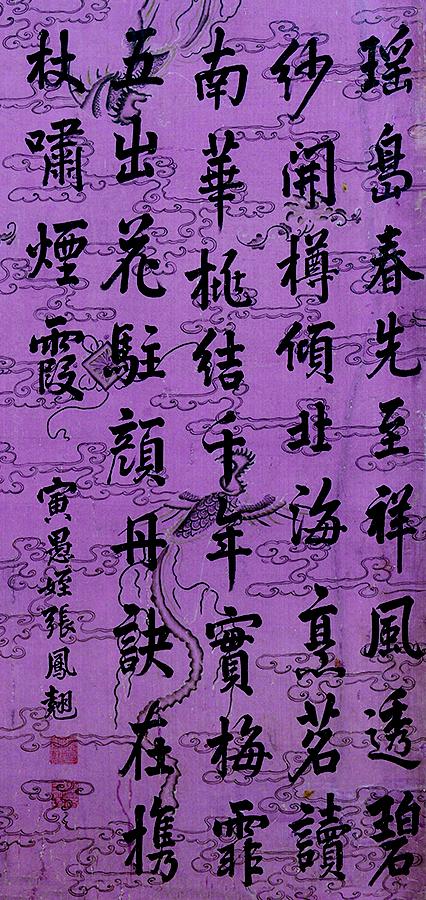 瑶島春先至祥風透碧
紗開樽傾北海烹茗讀
南華桃結千年實梅霏
五出花駐顔丹訣在携
杖嘯煙霞
寅愚姪張鳳翹